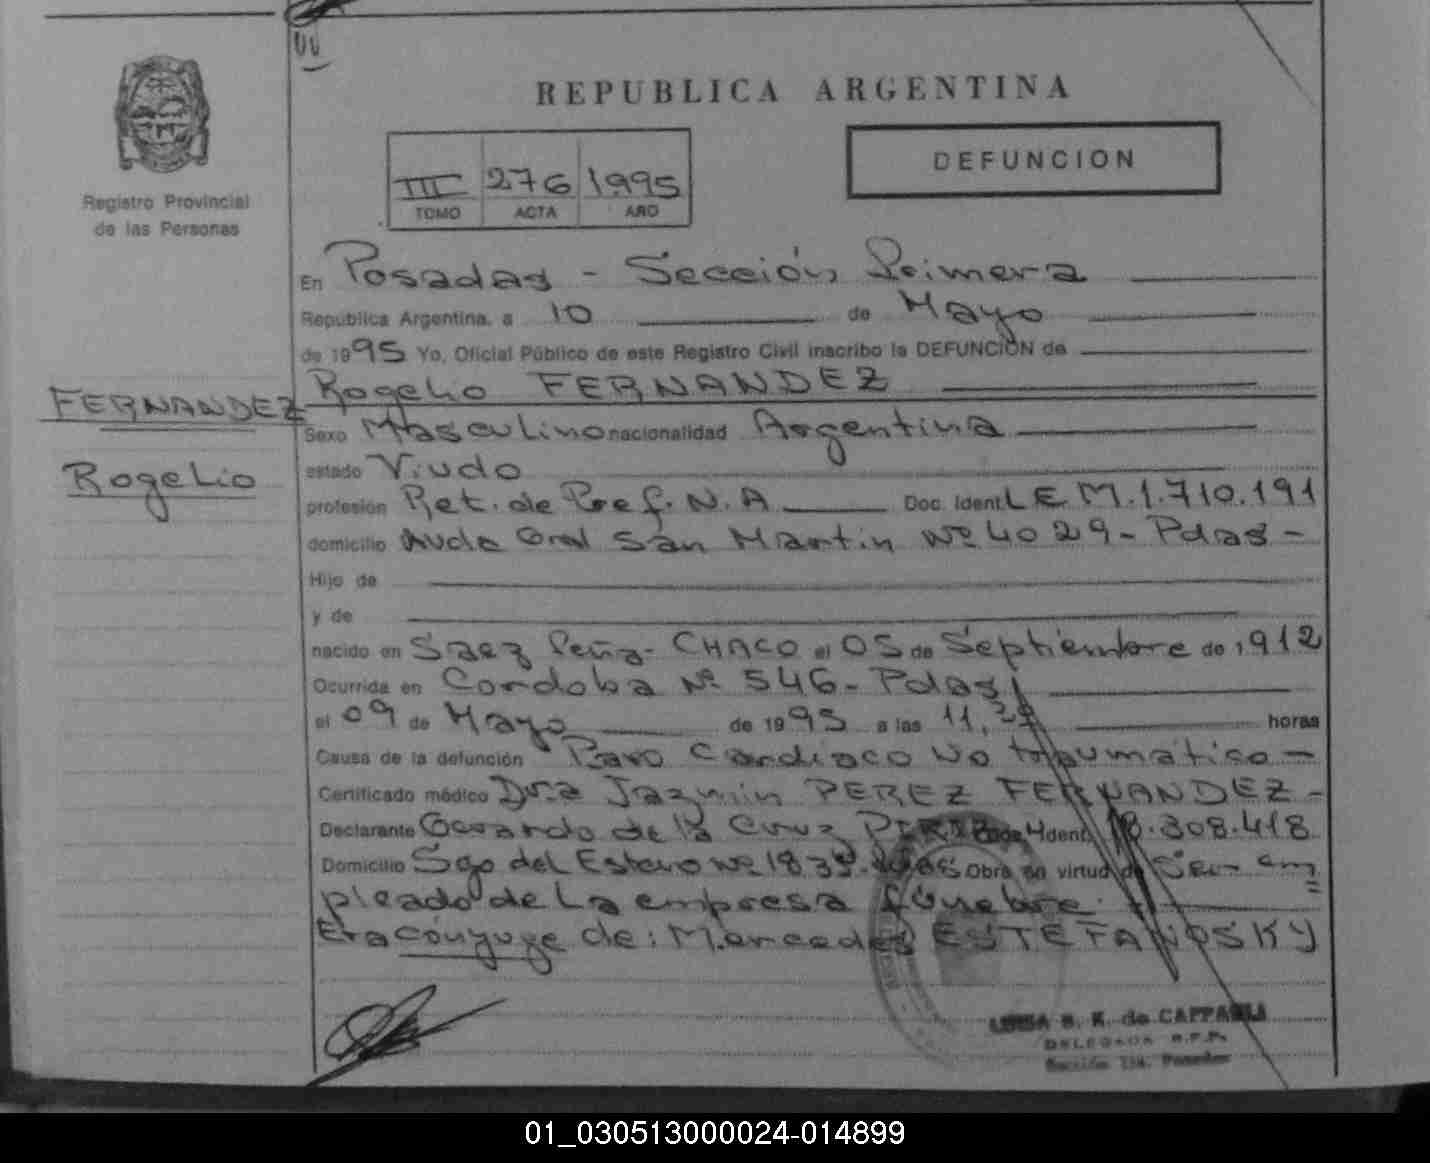 REPUBLICA ARGENTINA
Registro Provincial
de las Personas
III 276 1995
TOMO ACTA AÑO
DEFUNCION
En Posadas - Sección Primera
República Argentina, a 10 de Mayo
de 1995 Yo, Oficial Público de este Registro Civil inscribo la DEFUNCIÓN de
FERNANDEZ
Rogelio
Rogelio FERNANDEZ
Sexo Masculino nacionalidad Argentina
estado Viudo
profesión Ret. de Pref. N. A Doc. Ident. L E M. 1.710.191
domicilio Avda Gral San Martin Nº 4029 - Pdas -
Hijo de
y de
nacido en Saez Peña - CHACO el 05 de Septiembre de 1912
Ocurrida en Cordoba Nº 546 - Pdas
el 09 de Mayo de 1995 a las 11, horas
Causa de la defunción Paro Cardiaco No traumatico -
Certificado médico Dra Jazmin PEREZ FERNANDEZ -
Declarante Gerardo de la Cruz Ident. 18.308.418
Domicilio Sgo del Estero Nº Obra en virtud de Ser em
pleado de la empresa fúnebre.
Era cónyuge de: Mercedes ESTEFANOSKY
S. K. de CAPPA
DELEGADA R.P.P.
Sección 1ra. Posadas
01_030513000024-014899